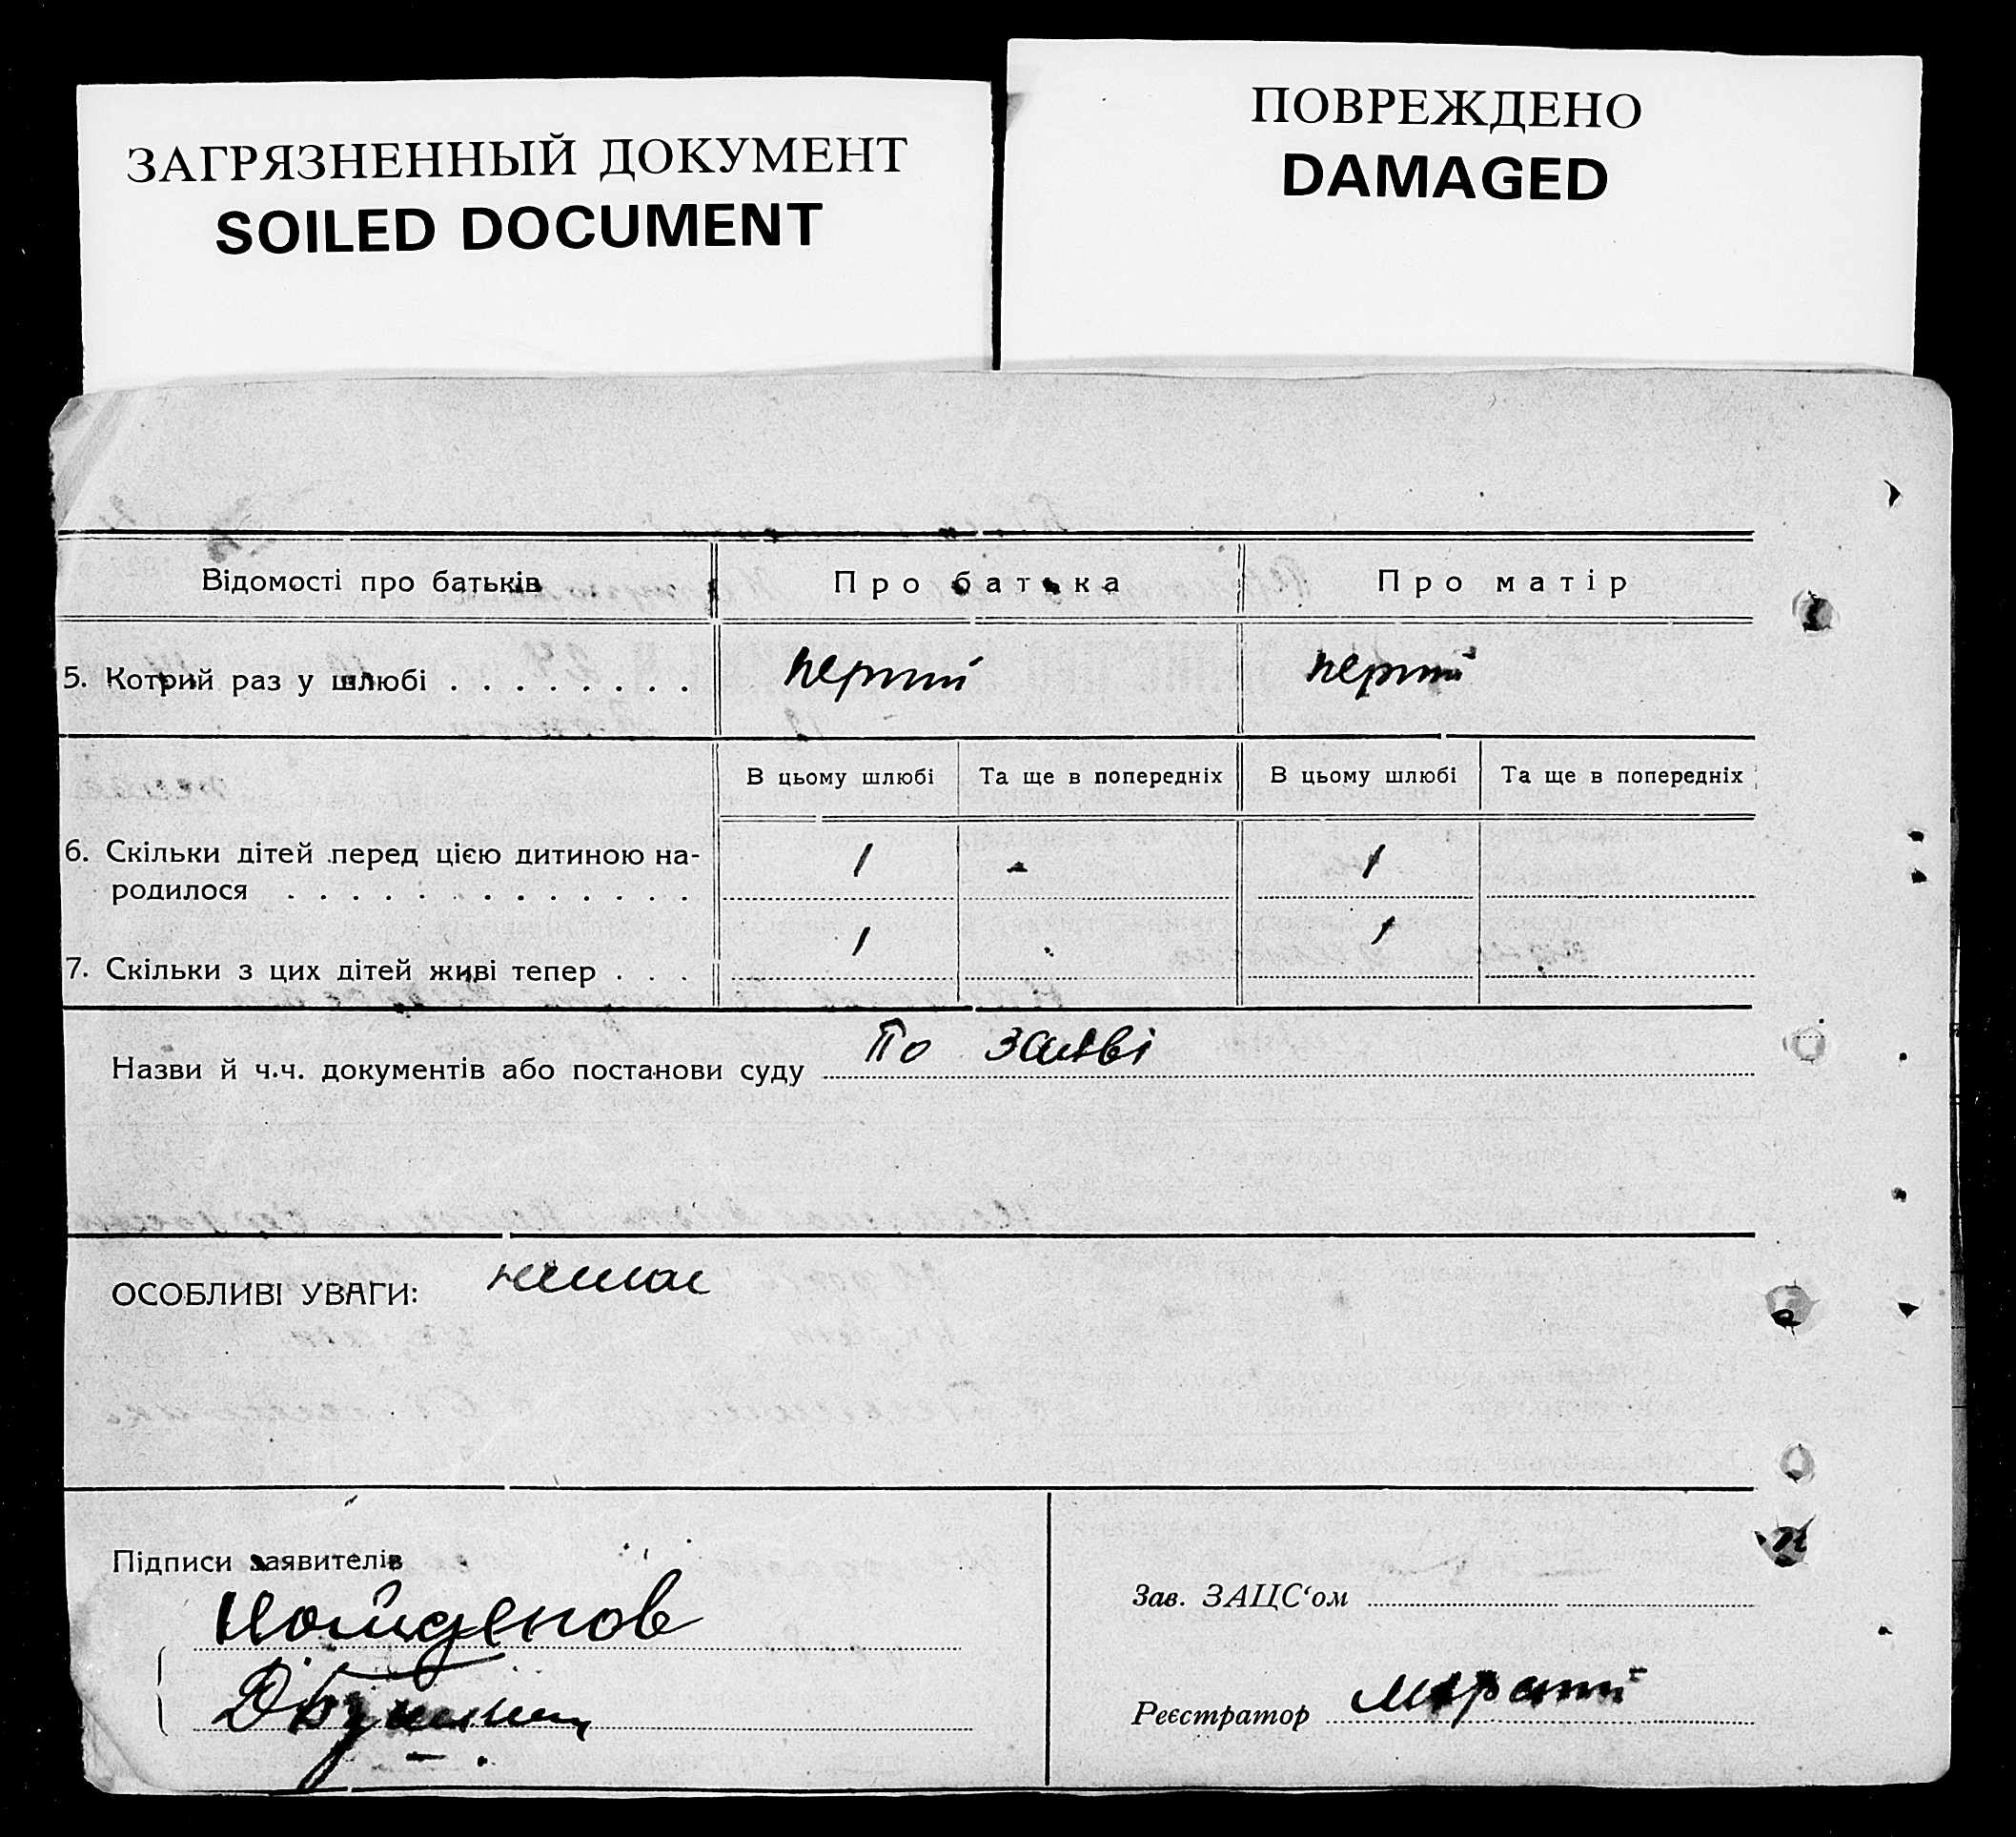 ЗАГРЯЗНЕННЫЙ ДОКУМЕНТ
SOILED DOCUMENT
ПОВРЕЖДЕНО
DAMAGED
Відомості про батьків Про батька Про матір
5. Котрий раз у шлюбі . . . . . . . . перший перший
В цьому шлюбі Та ще в попередніх В цьому шлюбі Та ще в попередніх
6. Скільки дітей перед цією дитиною на- 1 - 1
родилося . . . . . . . . . . . . .
7. Скільки з цих дітей живі тепер . . . 1 1
Назви й ч.ч. документів або постанови суду По заяві
ОСОБЛИВІ УВАГИ: немає
Підписи заявителів
Найденов
Зав. ЗАЦС‘ом
Реєстратор